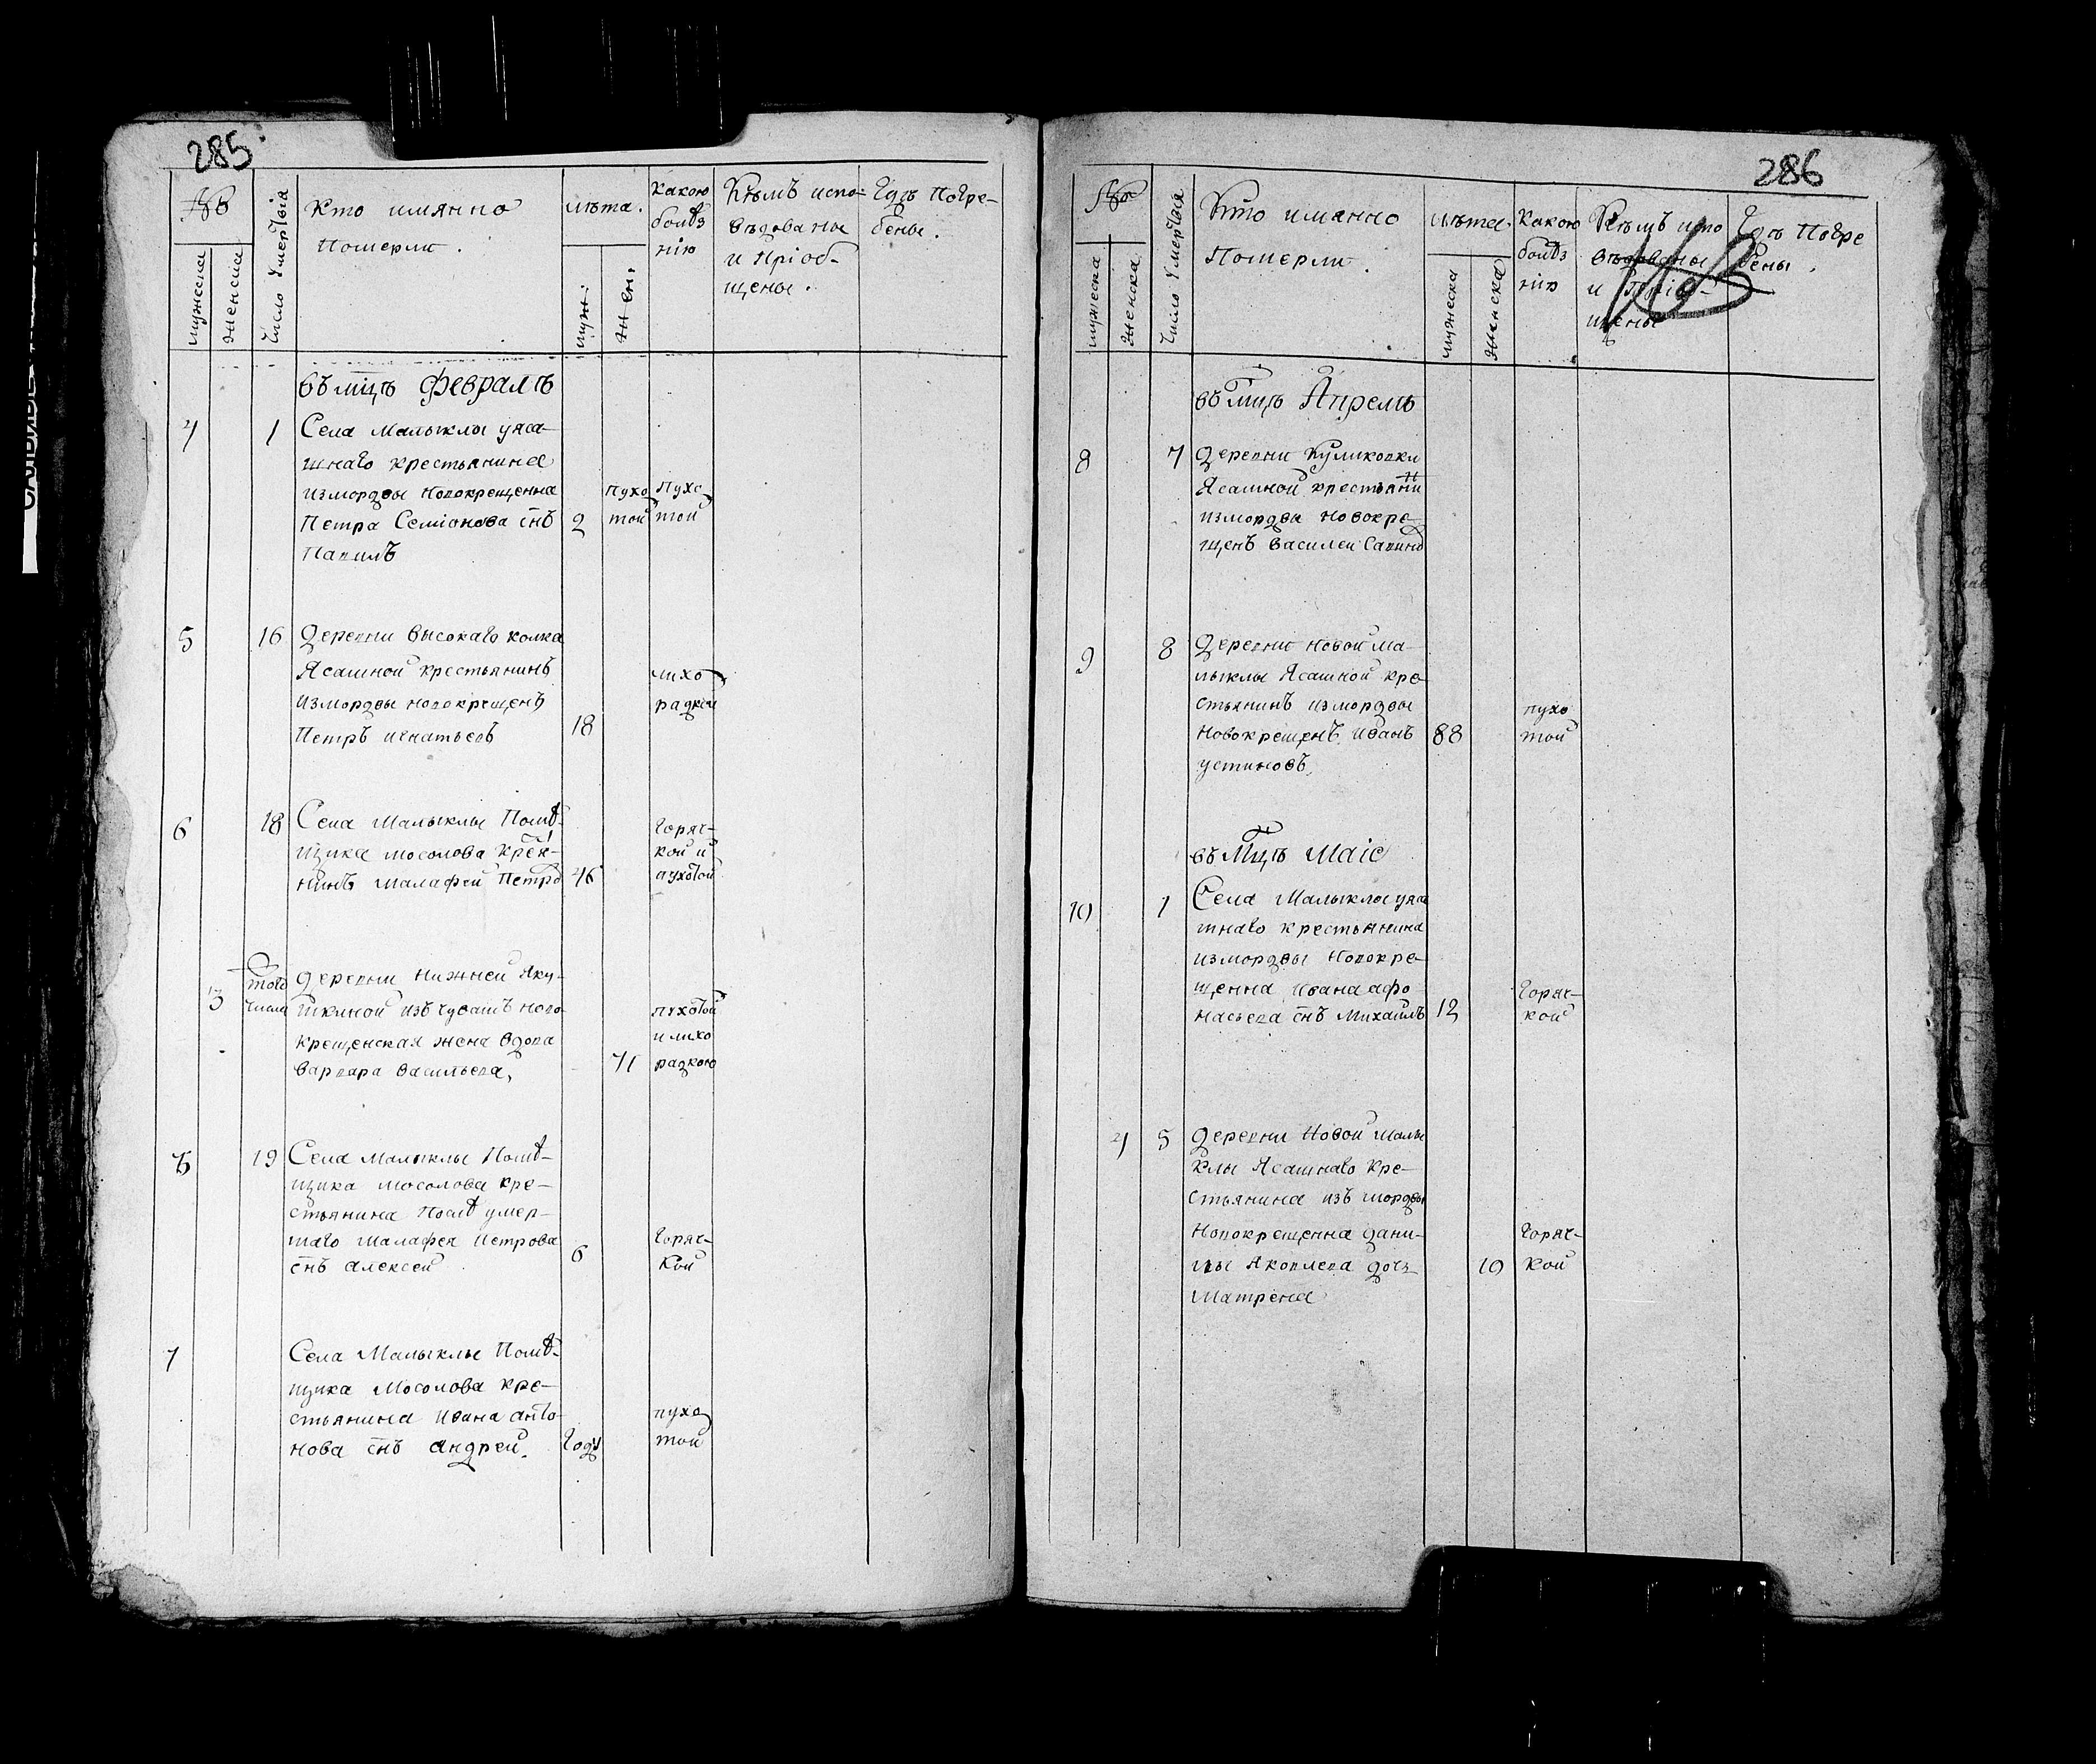 285
№
мужеска
женска
число умерТыя
Кто имянно
Померли.
лѣта.
муж:
жен:
Какою
болѣз
нію
Кѣмъ испо-
вѣдованы
и Пріоб-
щены.
Гдѣ Погре-
бены.
въ мцѣ Февралѣ
4 1 Села Малыклы уяса-
шнаго крестьянина
измордвы новокрещенна
Петра Семіонова снъ 2
Павилъ
пухо
той
Пухо
той
5 16 Деревни высокаго колка
Ясашной крестьянинъ
измордвы новокрещенъ
Петръ игнатьевъ 18
лихо
радкой
6 18 Села Малыклы Помѣ-
щика мосолова крея-
нинъ малафей Петро 46
Горяч-
кой и
пухотой
3 того
числа
деревни нижней Яку-
шкиной изъ чувашъ ново
крещенская жена вдова
варвара васильева, 71
пухотой
и лихо
радкою
19 Села малыклы Помѣ-
щика мосолова кре-
стьянина Послѣ умер-
шаго малафея Петрова
снъ алексей 6
Горяч-
кой
7 Села Малыклы Помѣ-
щика Мосолова кре-
стьянина Ивана анто-
нова снъ андрей. Году
пухо
той
286
№
мужеска
женска
число умерТыя
Кто имянно
Померли.
лѣта.
мужеска
женска
Какою
болѣз
нію
Кѣмъ испо
вѣдованы
и Пріо-
щены
Гдѣ Погре
бены.
въ мцѣ Апрелѣ
8 7 Деревни Куликовки
Ясашной крестьяни
измордвы новокре-
щенъ василеи Савино
9 8 Деревни новой ма-
лыклы Ясашной кре-
стьянинъ измордвы
Новокрещенъ Иванъ 88
устиновъ,
пухо
той
въ Мцѣ Маіе
10 1 Села Малыклы уяса
шнаго крестьянина
измордвы Новокре-
щенна Ивана афо
насьева снъ Михаилъ 12
Горяч-
кой
4 5 Деревни Новой малы
клы Ясашнаго кре-
стьянина изъ мордвы
Новокрещенна дани-
лы Яковлева дочь 10
Матрена
Горяч-
кой